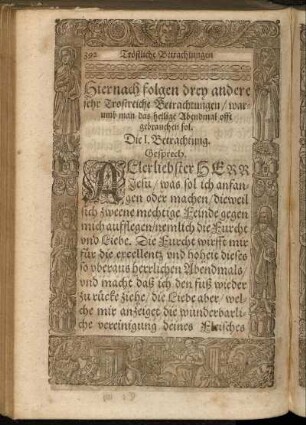 392 Tröstliche Betrachtungen
Hiernach folgen drey andere
sehr Trostreiche Betrachtungen / war-
umb man das heilige Abendmal offt
gebrauchen sol.
Die I. Betrachtung.
Gesprech.
ALlerliebster HERR
Jesu / was sol ich anfan-
gen oder machen / dieweil
sich zweene mechtige Feinde gegen
mich aufflegen / nemlich die Furcht
vnd Liebe. Die Furcht wirfft mir
für die excellentz vnd hoheit dieses
so vberaus herrlichen Abendmals /
vnd macht daß ich den fuß wieder
zu rücke ziehe / die Liebe aber / wel-
che mir anzeiget die wunderbarli-
che vereinigung deines Fleisches